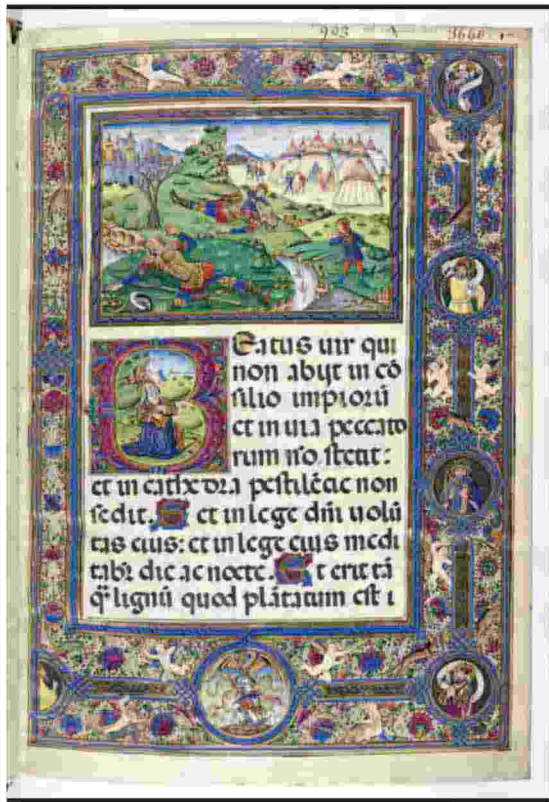 903
3660
Eatus uir qui
non abijt in cō
silio impiorū
et in uia peccato
rum nō stetit:
et in cathedra pestilēae non
sedit. S et in lege dñi uolū
tas eius: et in lege eius medi
tabr̄ die ac nocte. E t erit tā
q̄ lignū quod plātatum est i